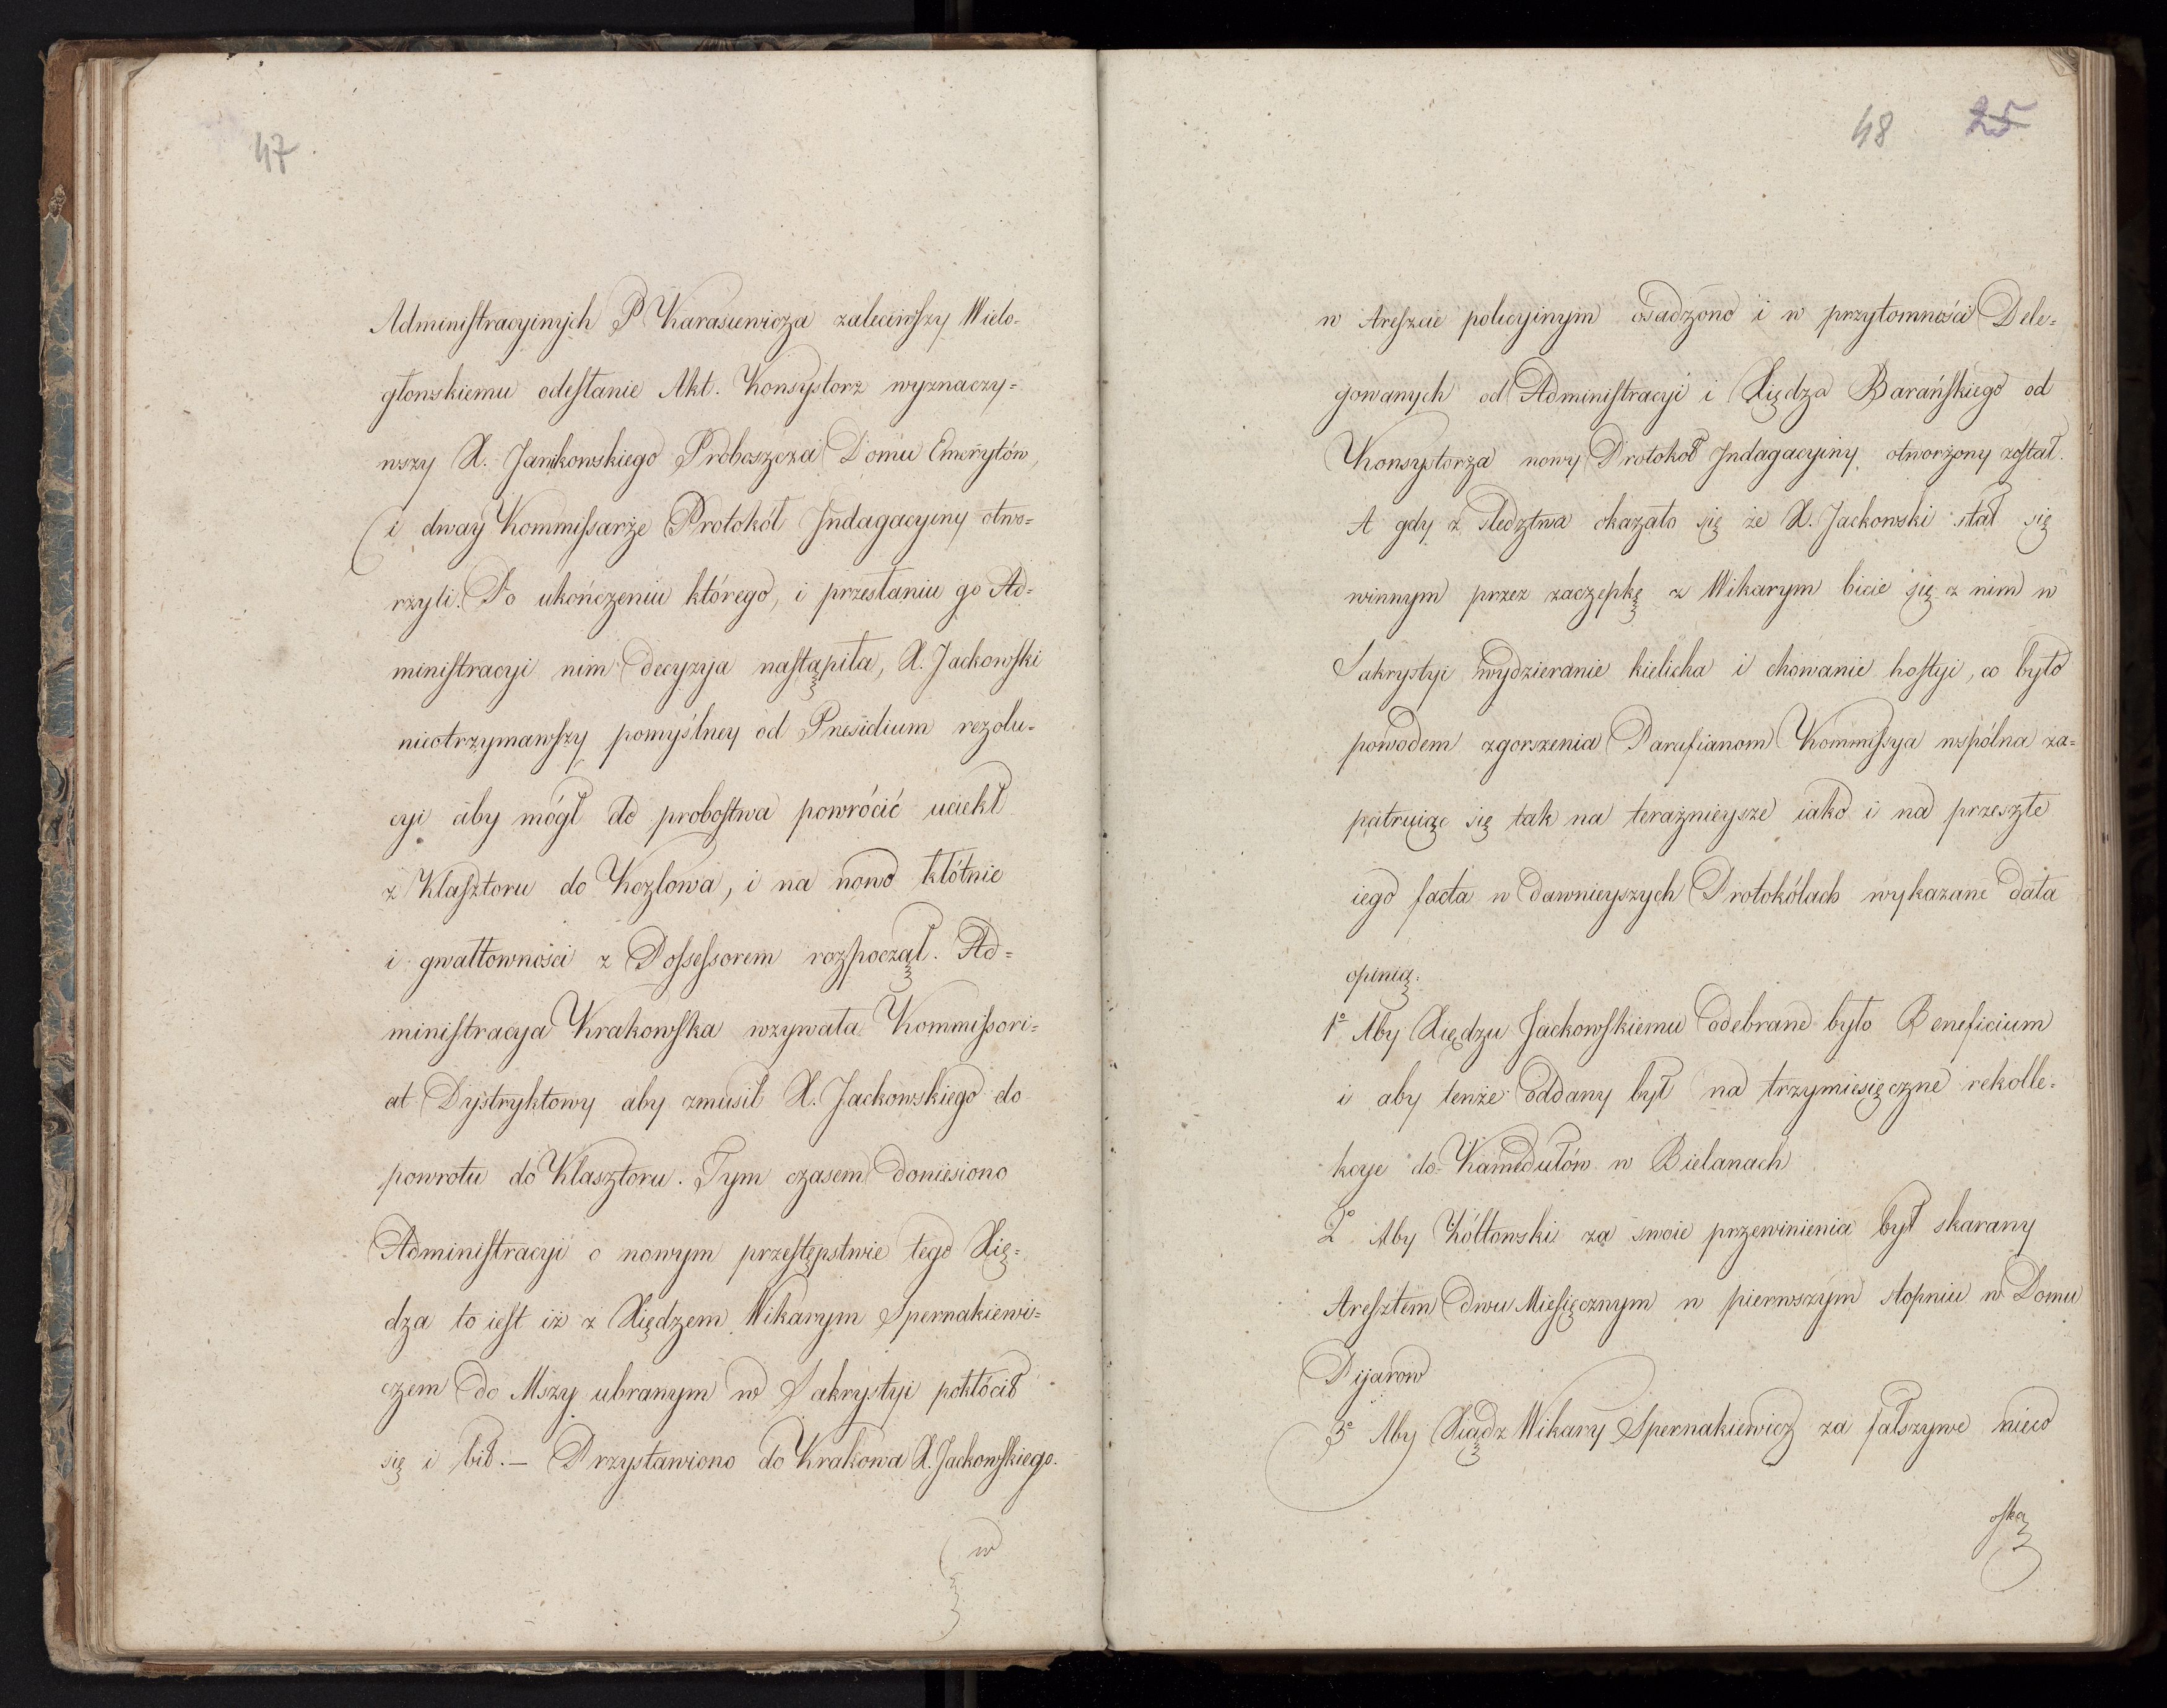 47
Administracyinych P Karasiewicza zaleciwszy Wielo=
głowskiemu odesłanie Akt. Konsystorz wyznaczy=
wszy X. Jankowskiego Proboszcza Domu Emerytów,
i dway Kommissarze Protokół Indagacyiny otwo=
rzyli. Po ukończeniu którego, i przesłaniu go Ad=
ministracyi nim decyzyja nastąpiła, X. Jackowski
nieotrzymawszy pomyślney od Presidium rezolu=
cyi aby mógł do probostwa powrócić uciekł
z Klasztoru do Kozlowa, i na nowo kłótnie
i gwałtowności z Possessorem rozpoczął. Ad=
ministracya Krakowska wzywała Kommissori=
at Dystryktowy aby zmusił X. Jackowskiego do
powrotu do Klasztoru. Tym czasem doniesiono
Administracyi o nowym przestępstwie tego Xię=
dza to iest iż z Xiędzem Wikarym Spernakiewi=
czem do Mszy ubranym w Sakrystyi pokłócił
się i bił. – Przystawiono do Krakowa X. Jackowskiego.
w
48 25
w Areszcie policyinym osadzono i w przytomności Dele=
gowanych od Administracyi i Xiędza Barańskiego od
Konsystorza nowy Protokół Indagacyiny otworzony został.
A gdy z śledztwa okazało się że X. Jackowski stał się
winnym przez zaczepkę z Wikarym bicie się z nim w
Sakrystyi wydzieranie kielicha i chowanie hostyi, co było
powodem zgorszenia Parafianom Kommissya wspólna za=
patruiąc się tak na teraźnieysze iako i na przeszłe
iego facta w dawnieyszych Protokółach wykazane dała
opinią.
1o Aby Xiędzu Jackowskiemu odebrane było Beneficium
i aby tenże oddany był na trzymiesięczne rekolle=
kcye do Kamedułów w Bielanach
2o Aby Żółtowski za swoie przewinienia był skarany
Aresztem dwu Miesięcznym w pierwszym stopniu w Domu
Pijarow
3o Aby Xiądz Wikary Spernakiewicz za fałszywe nieco